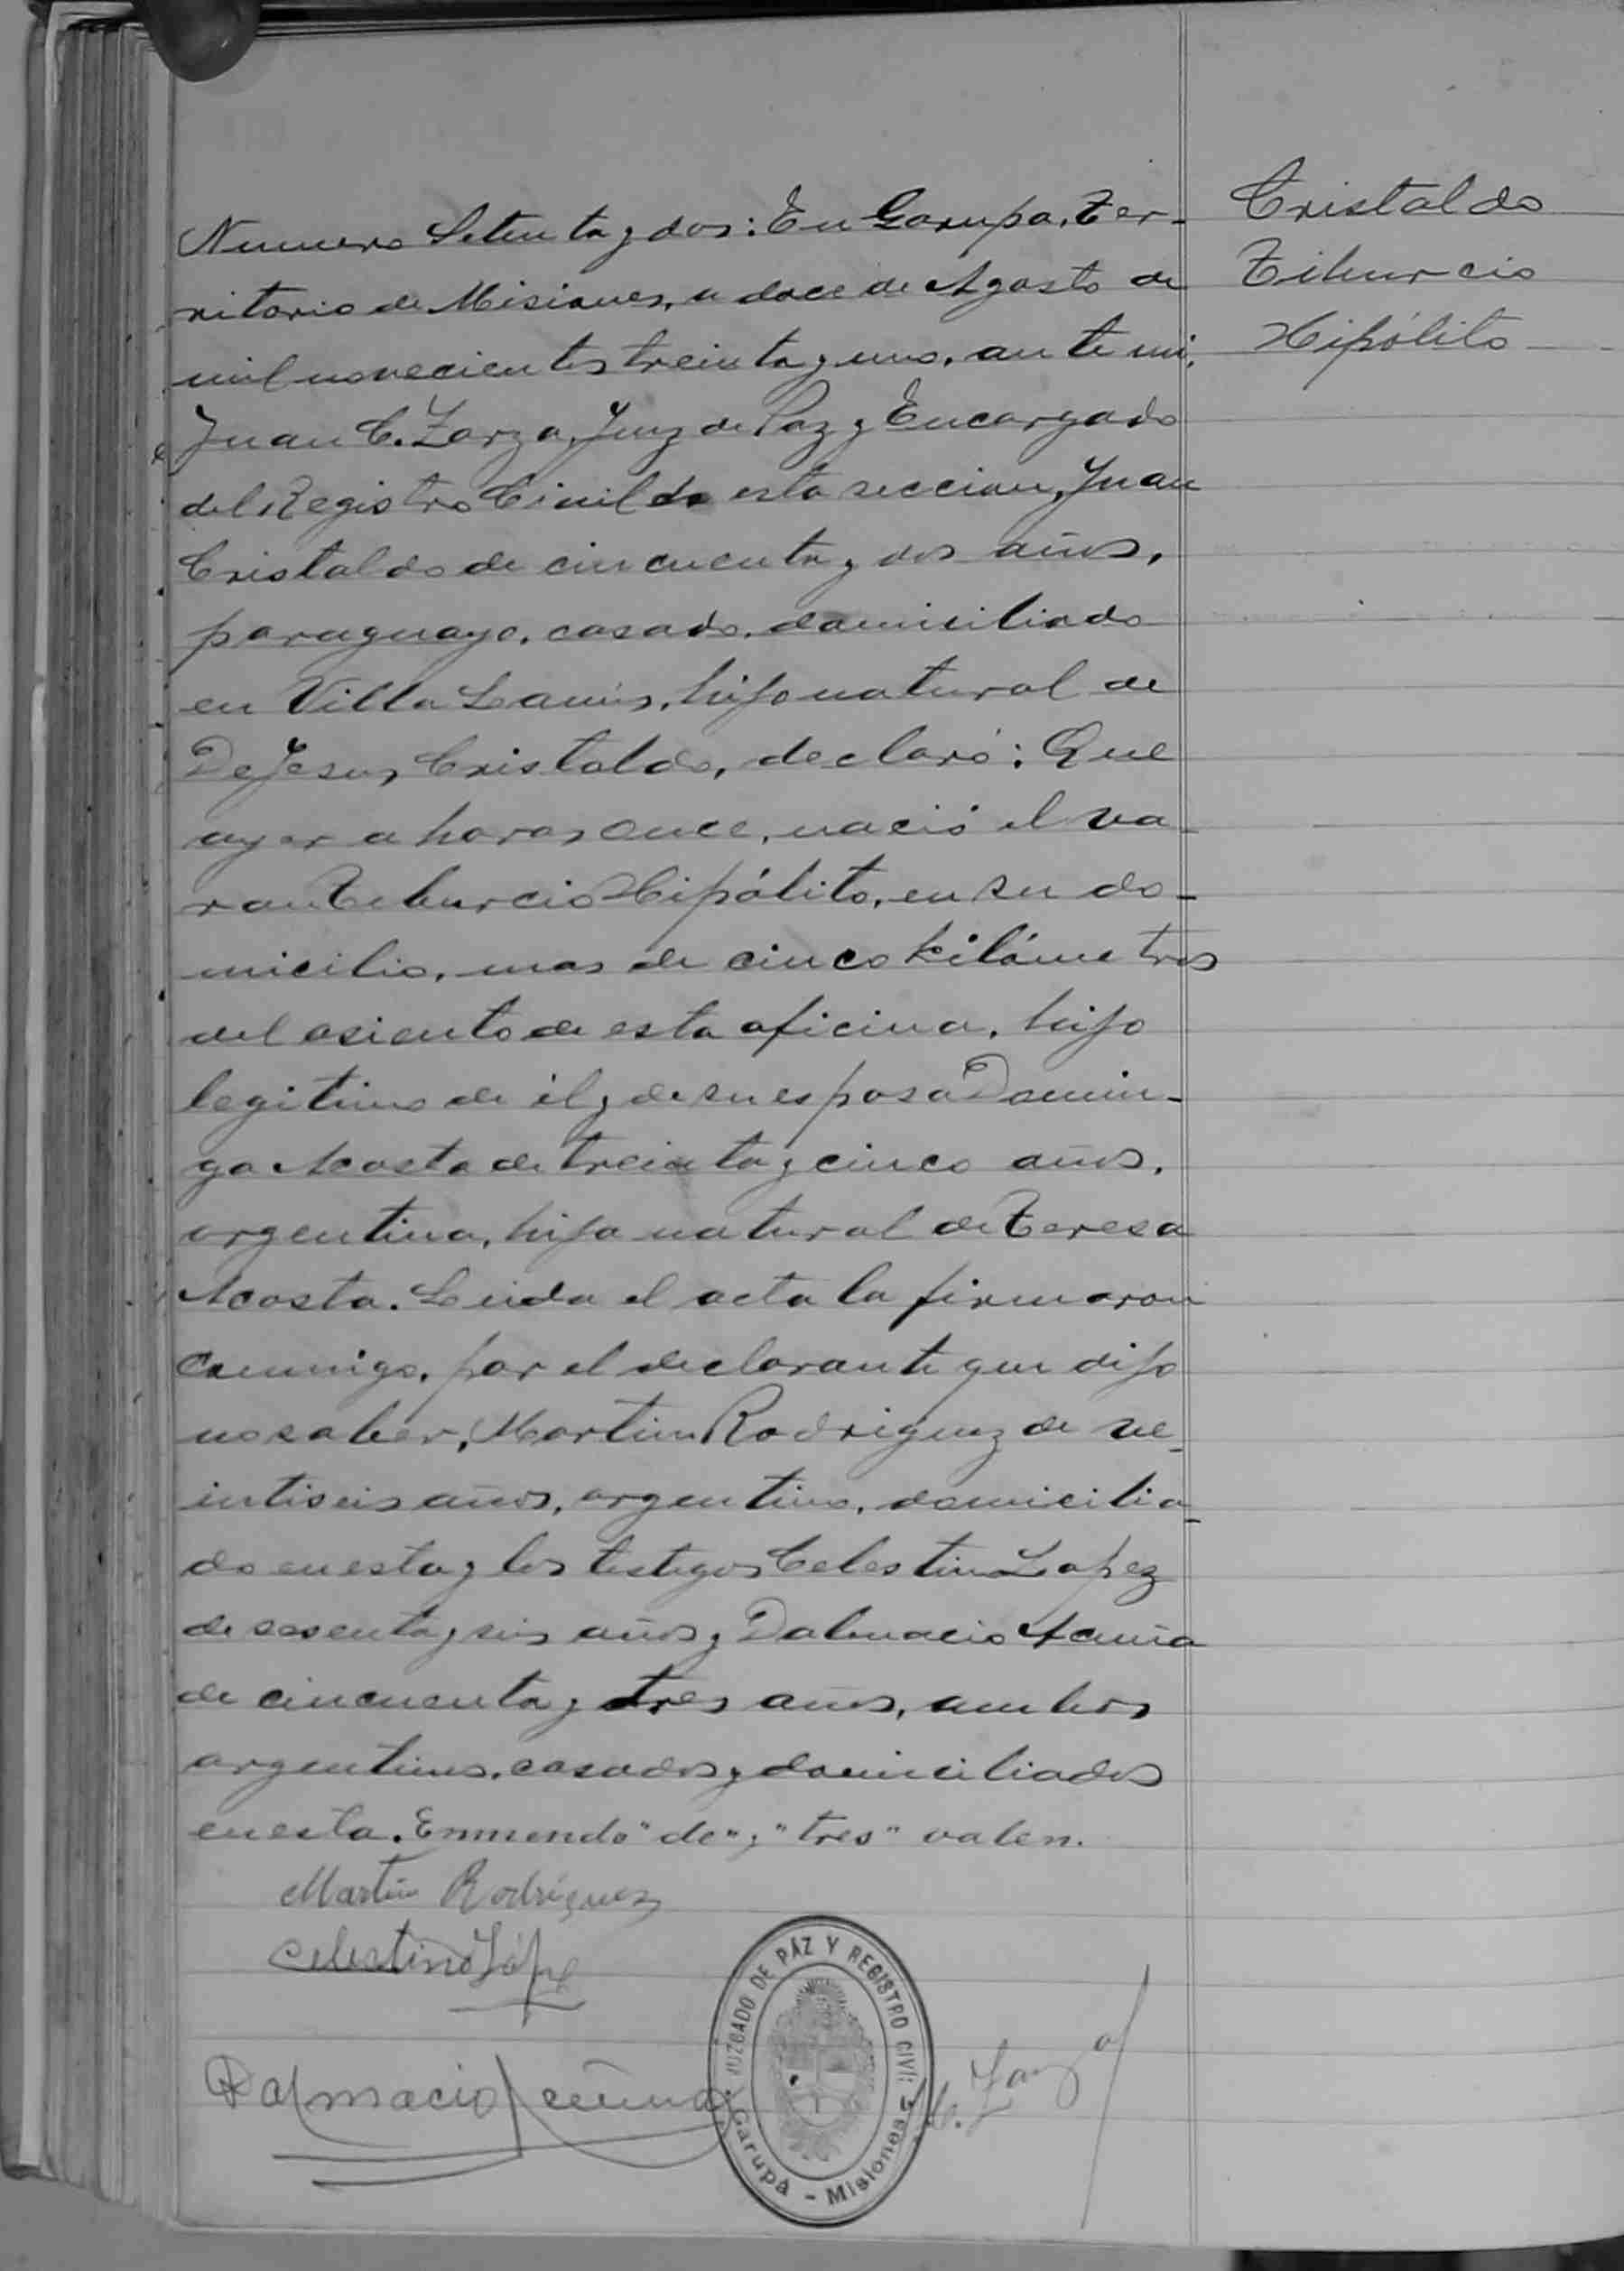 Cristaldo
Tiburcio
Hipólito
Numero Setenta y dos: En Garupa, Ter-
ritorio de Misiones, a doce de Agosto de
mil novecientos treinta y uno, ante mi,
Juan C. Zarza, Juez de Paz y Encargado
del Registro Civil de esta seccion, Juan
Cristaldo de cincuenta y dos años,
paraguayo, casado, domiciliado
en Villa Lanús, hijo natural de
De Jesus Cristaldo, declaró: Que
ayer a horas once, nació el va-
ron Teburcio Hipólito, en su do-
micilio, mas de cinco kilómetros
del asiento de esta oficina, hijo
legitimo de él y de su esposa Domin-
ga Acosta de treinta y cinco años,
argentina, hija natural de Teresa
Acosta. Leida el acta la firmaron
conmigo, por el declarante que dijo
no saber, Martin Rodriguez de ve-
intiseis años, argentino, domicilia-
do en esta y los testigos Celestino Lopez
de sesenta y seis años y Dalmacio Acuña
de cincuenta y tres años, ambos
argentinos, casados y domiciliados
en esta. Enmendo "de" y "tres" valen.
Martin Rodríguez
Celestino Lópe
Dalmacio Acuña
C. Zarza
JUZGADO DE PAZ Y REGISTRO CIVIL
Garupá - Misiones